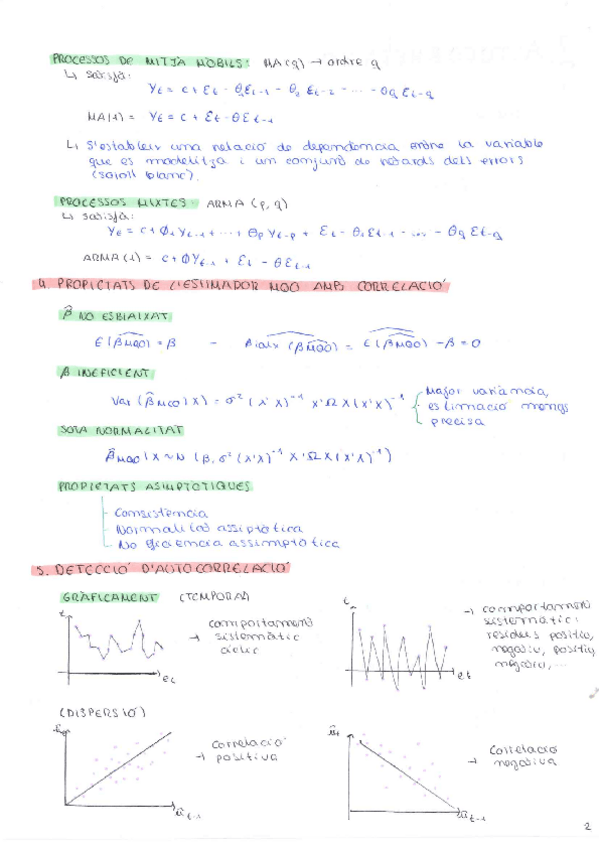 PROCESSOS DE MITJA MÒBILS: MA(q) → ordre q
↳ satisfà:
Yt = c + Et - θ1Et-1 - θ2 Et-2 - ... - θq Et-q
MA(1) = Yt = c + Et - θEt-1
↳ S'estableix una relació de dependencia entre la variable
que es modelitza i un conjunt de retards dels errors
(soroll blanc).
PROCESSOS MIXTES: ARMA (p, q)
↳ satisfà:
Yt = c + Φ1Yt-1 + ... + Θp Yt-p + Et - θ1Et-1 - ... - θq Et-q
ARMA(1) = c + ΦYt-1 + Et - θEt-1
4. PROPIETATS DE L'ESTIMADOR MQO AMB CORRELACIÓ
β̂ NO ESBIAIXAT
E(β̂MQO) = β - Biaix (β̂MQO) = E(β̂MQO) - β = 0
β INEFICIENT
Var (β̂MQO | X) = σ² (X'X)⁻¹ X'ΩX(X'X)⁻¹ { Major variància,
estimació menys
precisa
SOTA NORMALITAT
β̂MQO | X ~ N (β, σ² (X'X)⁻¹ X'ΩX(X'X)⁻¹)
PROPIETATS ASIMPTÒTIQUES
Consistència
Normalitat assiptòtica
No eficiencia assimptòtica
5. DETECCIÓ D'AUTOCORRELACIÓ
GRÀFICAMENT (TEMPORAL)
t
→ comportament
sistemàtic
cíclic
et
t
→ comportament
sistemàtic:
residus positiu,
negatiu, positiu,
negatiu, ...
et
(DISPERSIÓ)
→ correlació
positiva
ût-1
ût
→ Correlació
negativa
ût-1
2